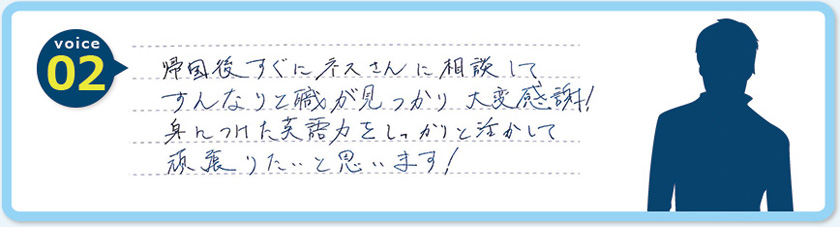 voice
02
帰国後すぐにネスさんに相談して
すんなりと職が見つかり大変感謝!
身につけた英語力をしっかりと活かして
頑張りたいと思います!